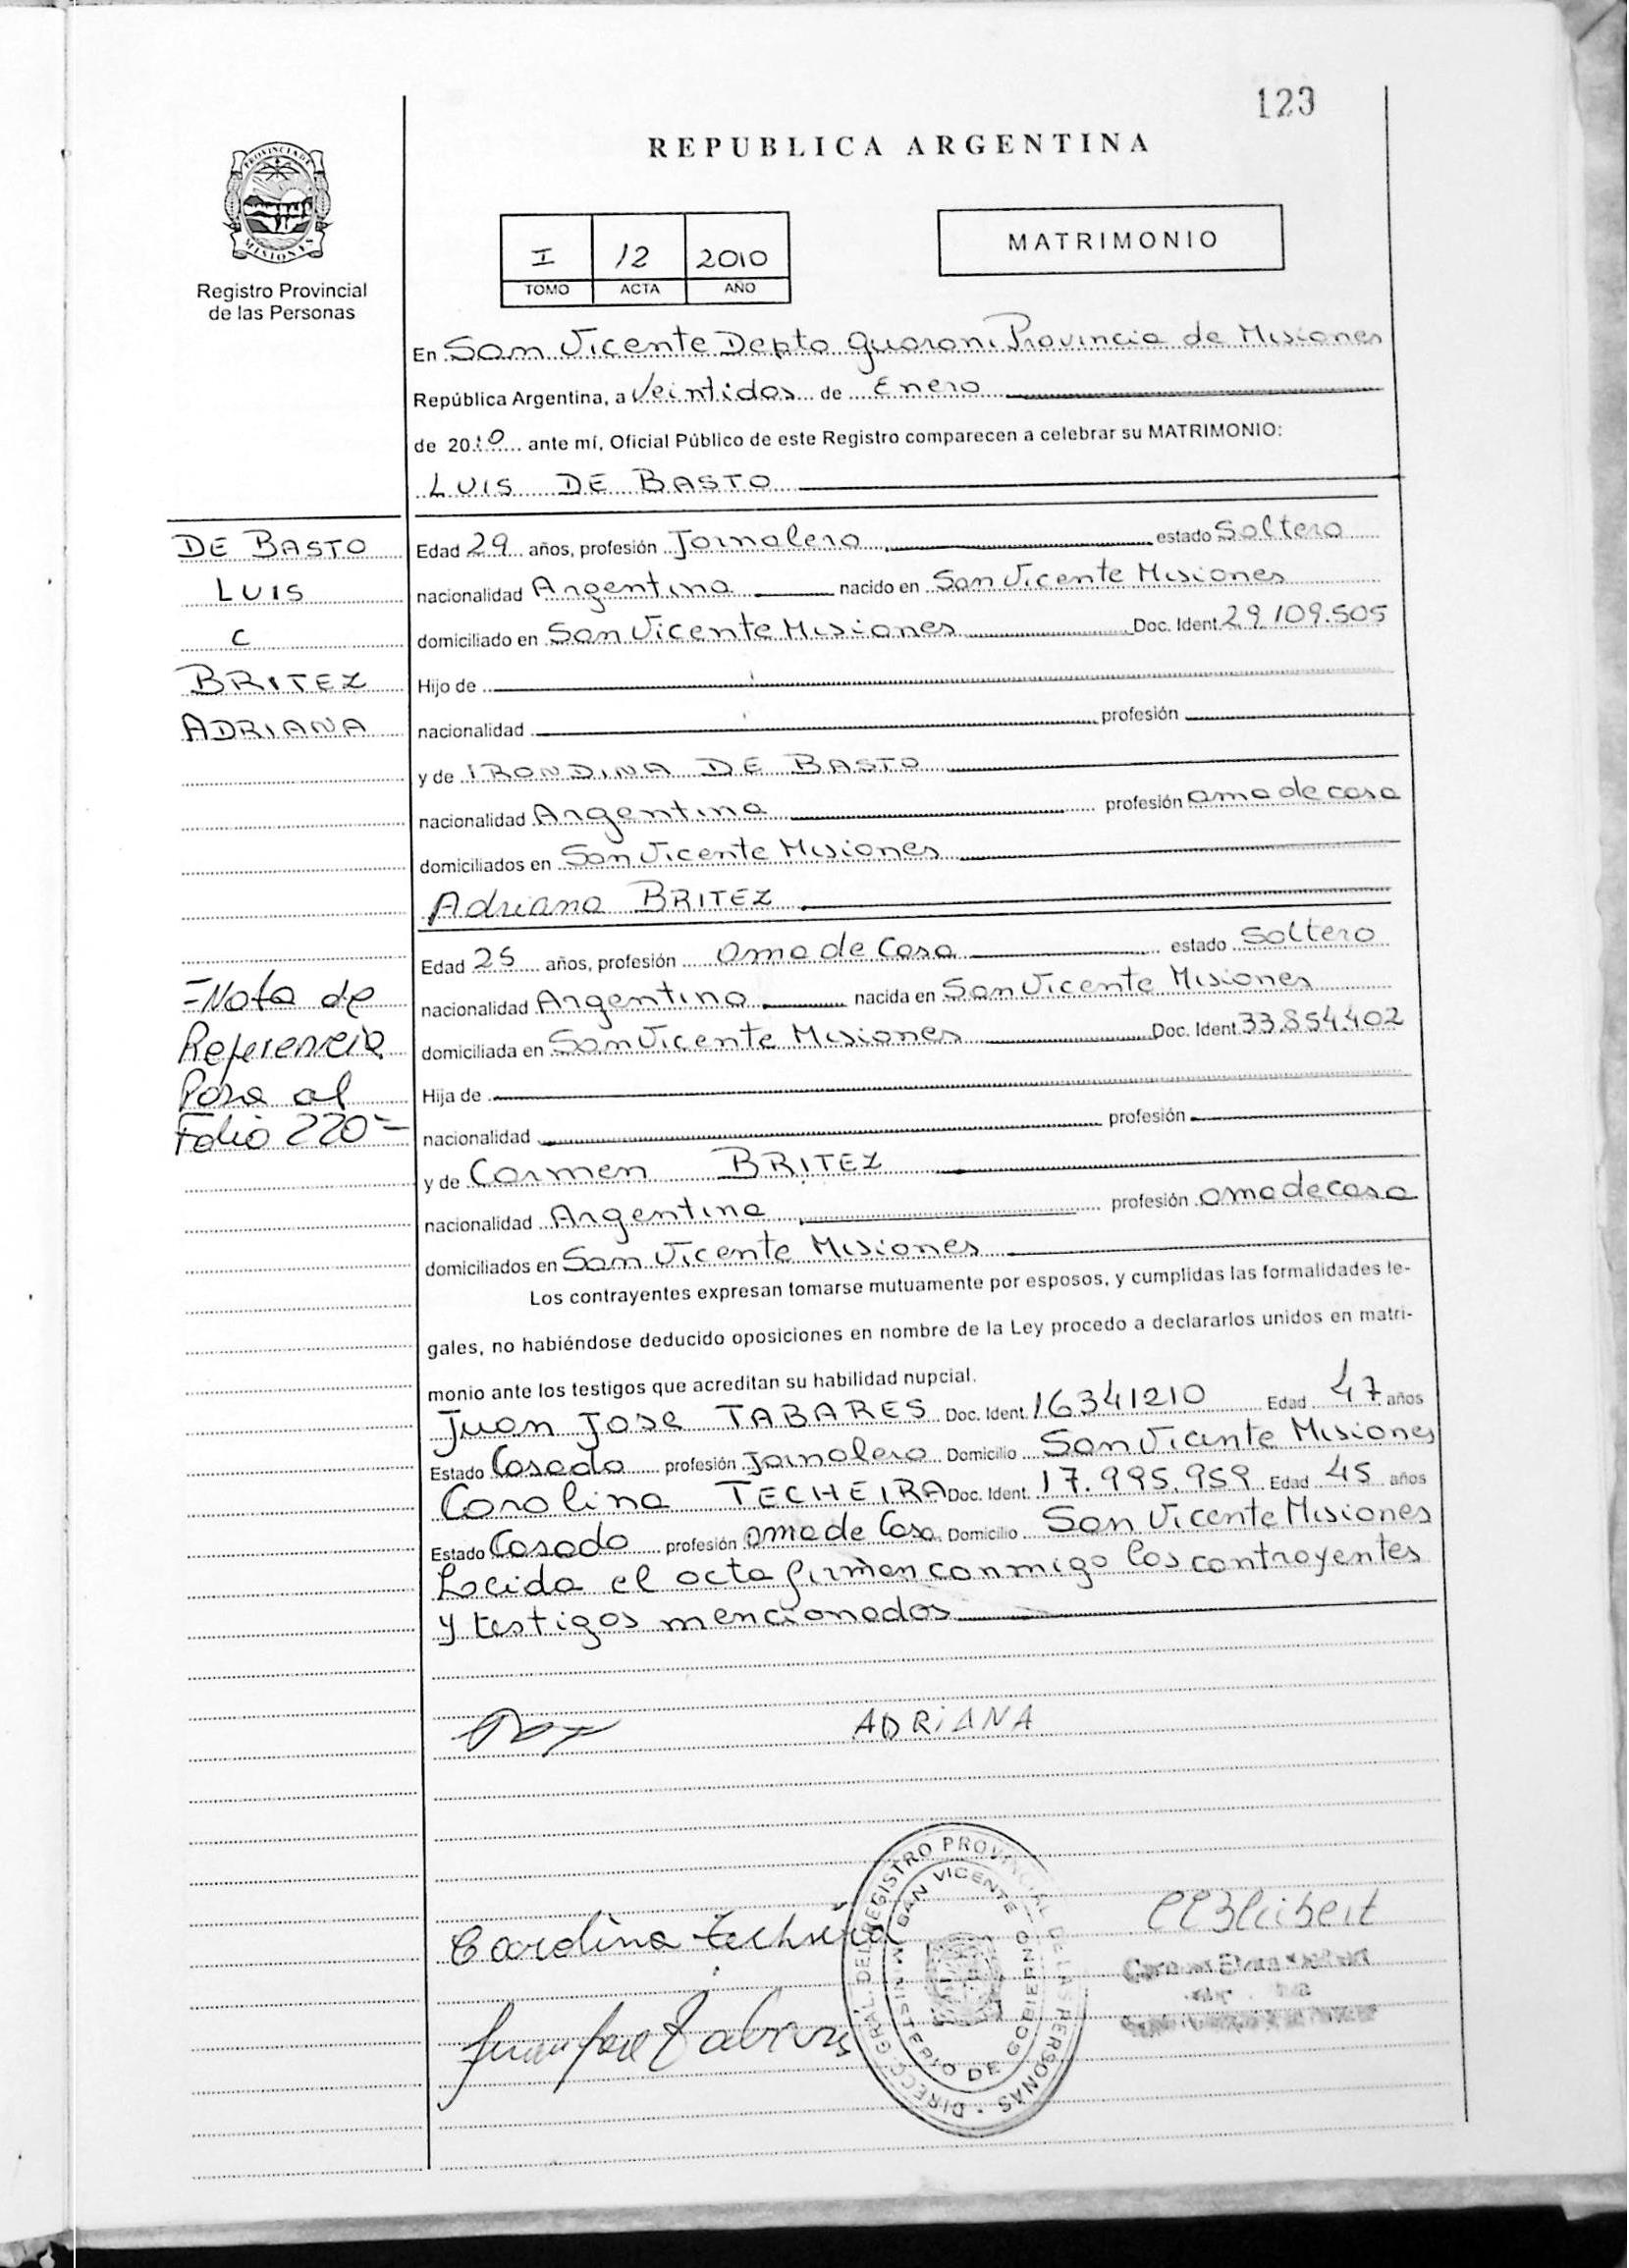 123
REPUBLICA ARGENTINA
PROVINCIA DE
MISIONES
Registro Provincial
de las Personas
I 12 2010
TOMO ACTA AÑO
MATRIMONIO
En San Vicente Depto Guarani Provincia de Misiones
República Argentina, a Veintidos de Enero
de 2010 ante mí, Oficial Público de este Registro comparecen a celebrar su MATRIMONIO:
LUIS DE BASTO
DE BASTO
LUIS
C
BRITEZ
ADRIANA
Edad 29 años, profesión Jornalero estado Soltero
nacionalidad Argentina nacido en San Vicente Misiones
domiciliado en San Vicente Misiones Doc. Ident. 29.109.505
Hijo de
nacionalidad profesión
y de IRONDINA DE BASTO
nacionalidad Argentina profesión ama de casa
domiciliados en San Vicente Misiones
Adriana BRITEZ
Edad 25 años, profesión ama de Casa estado Soltera
nacionalidad Argentina nacida en San Vicente Misiones
domiciliada en San Vicente Misiones Doc. Ident. 33.854.402
Hija de
nacionalidad profesión
y de Carmen BRITEZ
nacionalidad Argentina profesión ama de casa
domiciliados en San Vicente Misiones
=Nota de
Referencia
Pasa al
Folio 220=
Los contrayentes expresan tomarse mutuamente por esposos, y cumplidas las formalidades le-
gales, no habiéndose deducido oposiciones en nombre de la Ley procedo a declararlos unidos en matri-
monio ante los testigos que acreditan su habilidad nupcial.
Juan Jose TABARES Doc. Ident. 16341210 Edad 47 años
Estado Casado profesión Jornalero Domicilio San Vicente Misiones
Carolina TECHEIRA Doc. Ident. 17.995.959 Edad 45 años
Estado Casada profesión ama de Casa Domicilio San Vicente Misiones
Leeida el acta firman conmigo los contrayentes
y testigos mencionados
ADRIANA
Carolina Techeira
Juan Jose Tabares
DIRECC. GRAL. DEL REGISTRO PROVINCIAL DE LAS PERSONAS
SAN VICENTE
MINISTERIO DE GOBIERNO